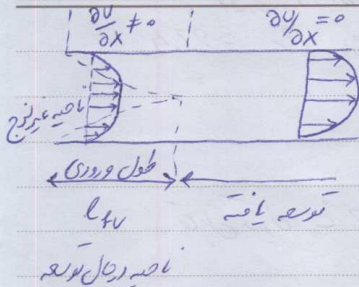 ∂u/∂x ≠ 0
∂u/∂x = 0
ناحیه غیرلزج
طول ورودی
توسعه یافته
ناحیه درحال توسعه